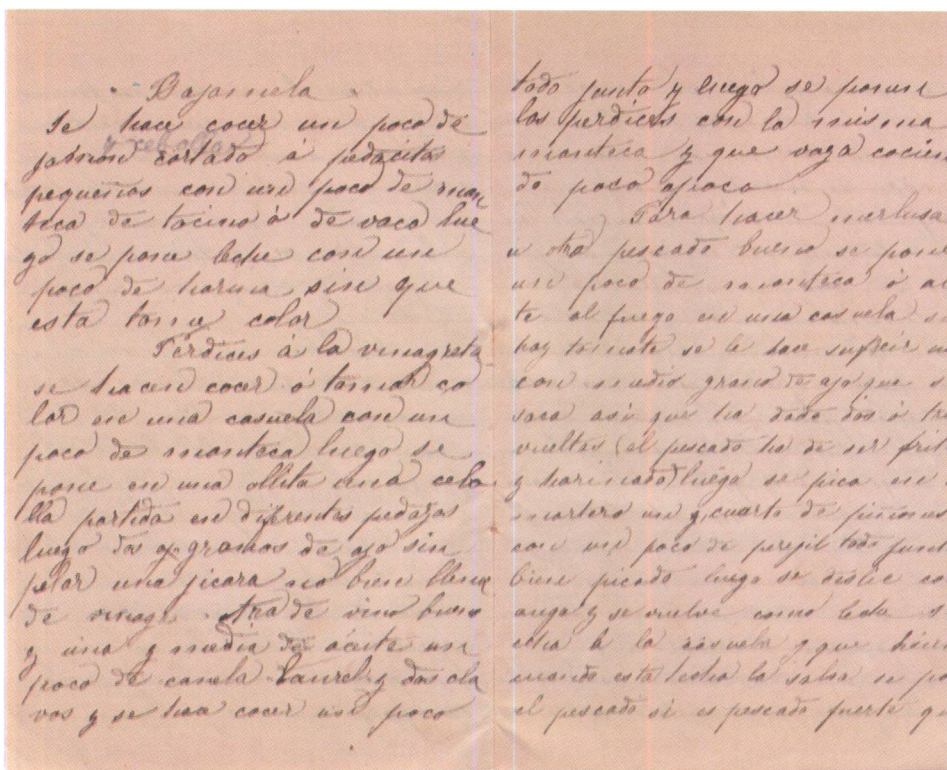 Bajamela
Se hace cocer un poco de
y cebolla
jamon cortado á pedacitos
pequeños con un poco de man
teca de tocino ó de vaca lue
go se pone leche con un
poco de harina sin que
esta tome color
Pérdices á la vinagreta
se hacen cocer ó tomar co
lor en una casuela con un
poco de manteca luego se
pone en una ollita una cebo
lla partida en difrentes pedazos
luego dos gramos de ajo sin
pelar una jicara no bien llena
de vinagre otra de vino bueno
y una y media de áceite un
poco de canela laurel y dos cla
vos y se hace cocer un poco
todo junto y luego se ponen
las perdices con la misma
manteca y que vaya cocien
do poco apoco
Para hacer merlusa
u otro pescado bueno se pone
un poco de manteca ó ac
te al fuego en una casuela s
hay tomate se le hace sufreir u
con medio grano de ajo que s
saca asi que ha dado dos ó tr
vueltas (el pescado ha de ser frit
y harinado) luego se pica en
mortero un cuarto de piñones
con un poco de perejil todo junt
bien picado luego se deslie co
agua y se vuelve como leche s
echa á la casuela y que hier
cuando esta hecha la salsa se po
el pescado si es pescado fuerte q